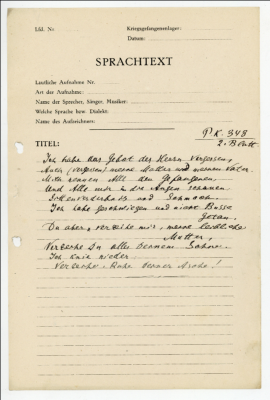 Lfd. Nr.
Kriegsgefangenenlager:
Datum:
SPRACHTEXT
Lautliche Aufnahme Nr.
Art der Aufnahme:
Name der Sprecher, Sänger, Musiker:
Welche Sprache bzw. Dialekt:
Name des Aufzeichners:
PK. 348
2. Blatt
TITEL:
Ich habe das Gebot des Herrn vergessen,
Auch (vergessen) meine Mutter und meinen Vater.
nennen All den Gefangenen,
Und Alle mir in die Augen
und
Ich habe geschwiegen und nicht Busse
Getan.
Du aber, verzeihe mir, meine leibliche
Mutter,
Verzeihe Du alles deinem Sohne.
Ich knie nieder
Verzeihe, Ruhe deiner Asche!